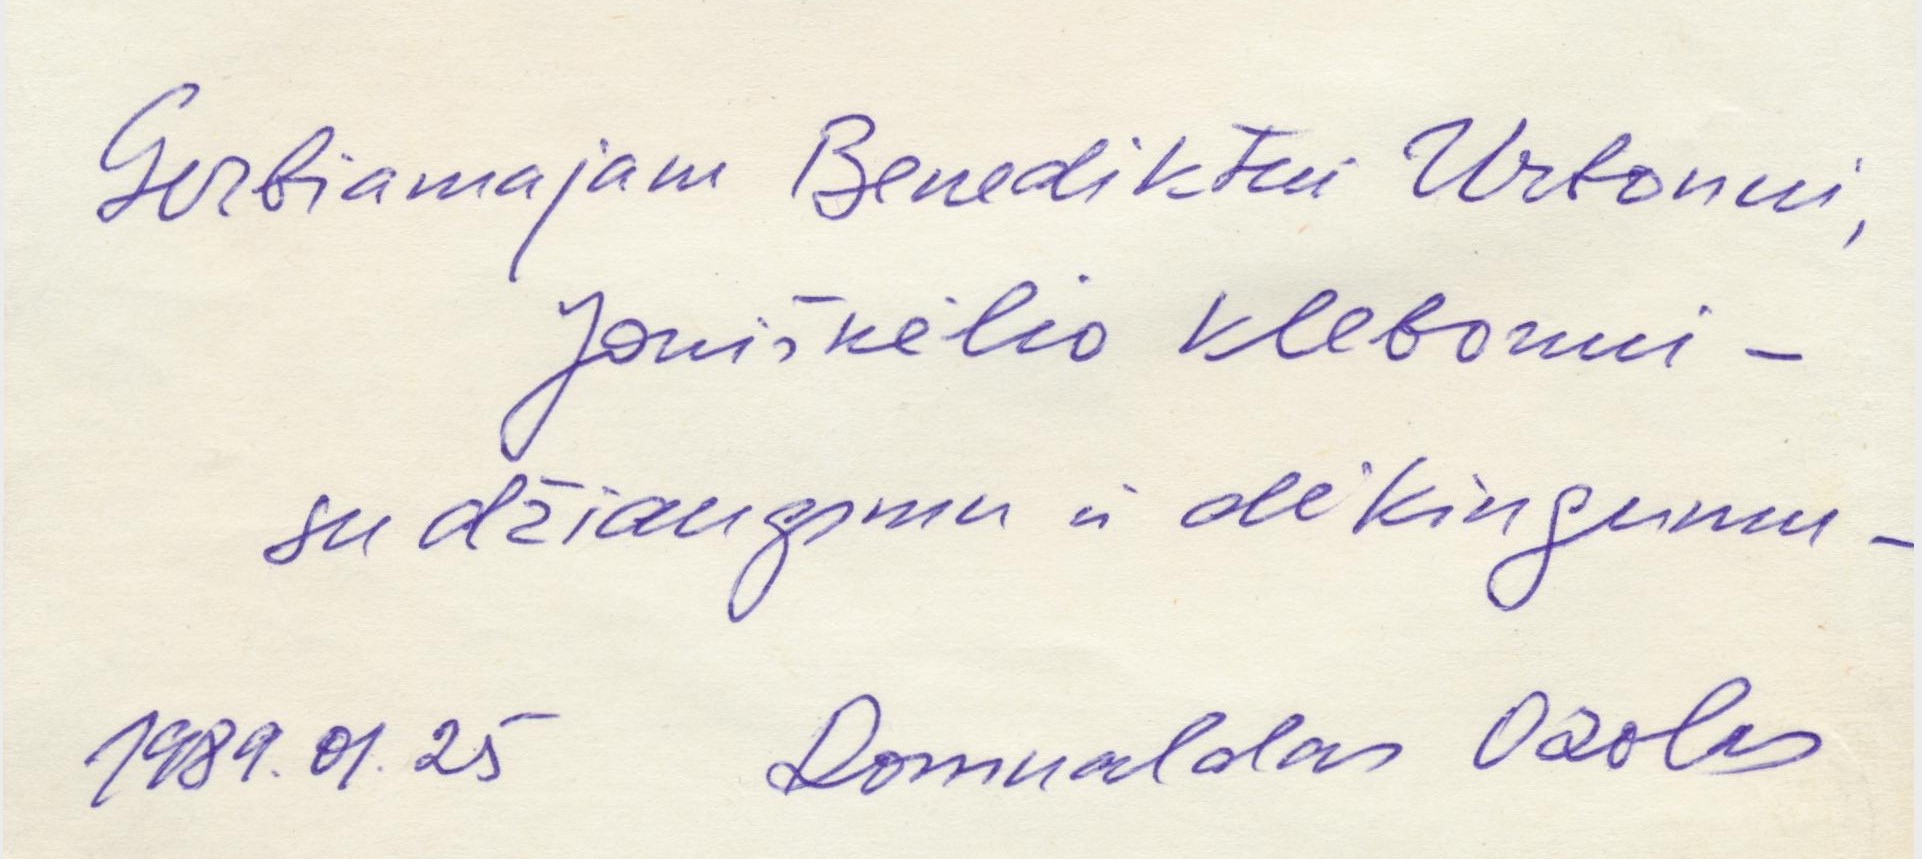 Gerbiamajam Benediktui Urbonui,
Joniškėlio klebonui –
su džiaugsmu ir dėkingumu –
1989.01.25 Romualdas Ozolas